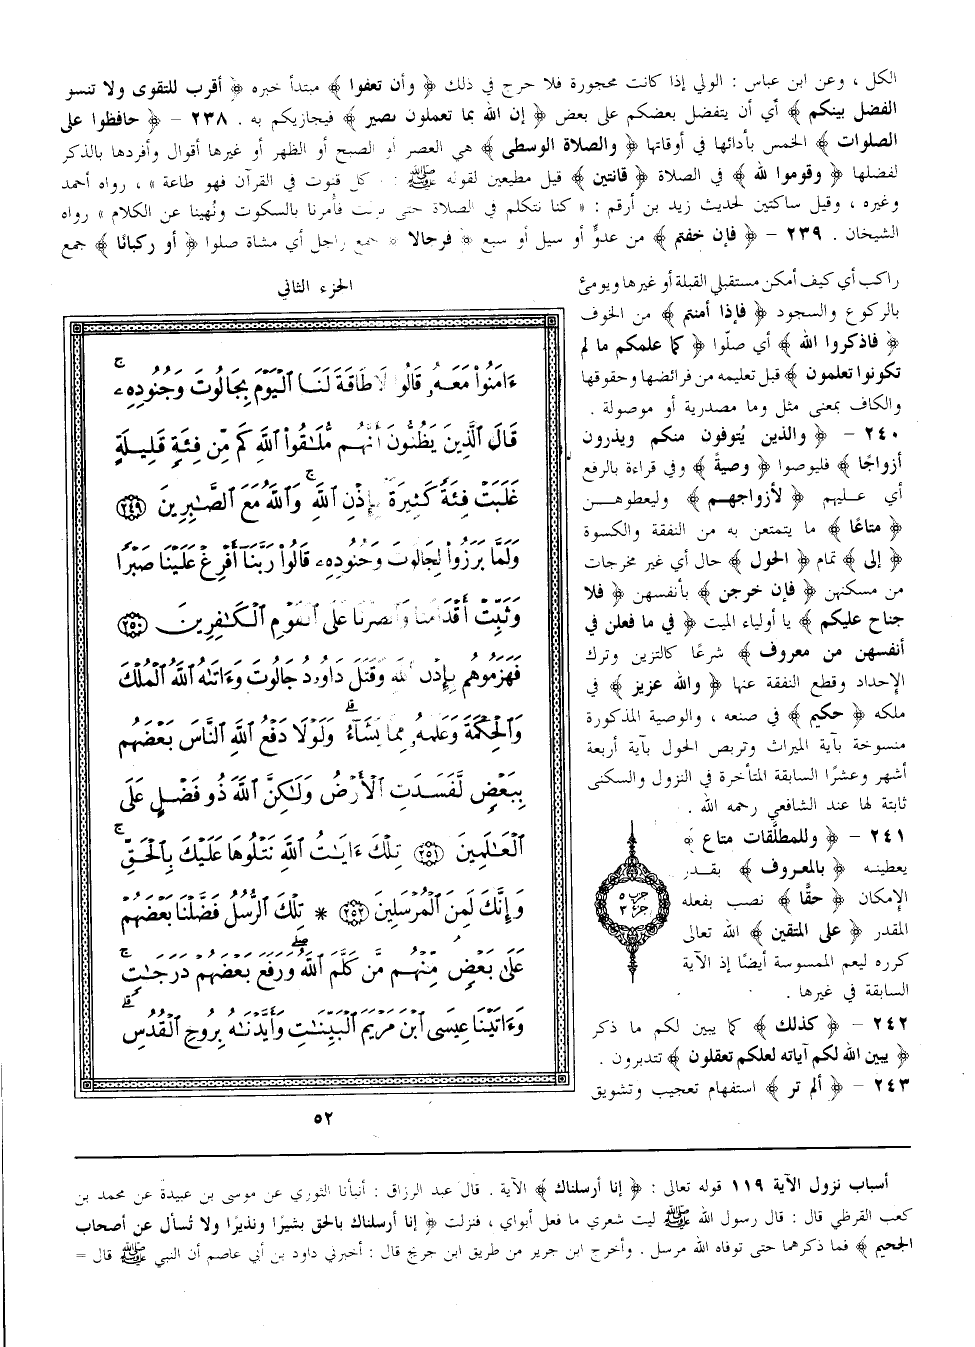 الكل ، وعن ابن عباس : الولي إذا كانت محجورة فلا حرج في ذلك ﴿ وأن تعفوا ﴾ مبتدأ خبره ﴿ أقرب للتقوى ولا تنسو
الفضل بينكم ﴾ أي أن يتفضل بعضكم على بعض ﴿ إن الله بما تعملون بصير ﴾ فيجازيكم به . ٢٣٨ - ﴿ حافظوا على
الصلوات ﴾ الخمس بأدائها في أوقاتها ﴿ والصلاة الوسطى ﴾ هي العصر أو الصبح أو الظهر أو غيرها أقوال وأفردها بالذكر
لفضلها ﴿ وقوموا لله ﴾ في الصلاة ﴿ قانتين ﴾ قيل مطيعين لقوله ﷺ : كل قنوت في القرآن فهو طاعة » ، رواه أحمد
وغيره ، وقيل ساكتين لحديث زيد بن أرقم : « كنا نتكلم في الصلاة حتى نزلت فأمرنا بالسكوت ونُهينا عن الكلام » رواه
الشيخان . ٢٣٩ - ﴿ فإن خفتم ﴾ من عدوٍّ أو سيل أو سبع ﴿ فرحالا ﴾ جمع راجل أي مشاة صلوا ﴿ أو ركبانًا ﴾ جمع
راكب أي كيف أمكن مستقبلي القبلة أو غيرها ويومئ
بالركوع والسجود ﴿ فإذا أمنتم ﴾ من الخوف
﴿ فاذكروا الله ﴾ أي صلّوا ﴿ كما علمكم ما لم
تكونوا تعلمون ﴾ قبل تعليمه من فرائضها وحقوقها
والكاف بمعنى مثل وما مصدرية أو موصولة .
٢٤٠ - ﴿ والذين يُتوفون منكم ويذرون
أزواجًا ﴾ فليوصوا ﴿ وصيةً ﴾ وفي قراءة بالرفع
أي عليهم ﴿ لأزواجهم ﴾ وليعطوهن
﴿ متاعًا ﴾ ما يتمتعن به من النفقة والكسوة
﴿ إلى ﴾ تمام ﴿ الحول ﴾ حال أي غير مخرجات
من مسكنهن ﴿ فإن خرجن ﴾ بأنفسهن ﴿ فلا
جناح عليكم ﴾ يا أولياء الميت ﴿ في ما فعلن في
أنفسهن من معروف ﴾ شرعًا كالتزين وترك
الإحداد وقطع النفقة عنها ﴿ والله عزيز ﴾ في
ملكه ﴿ حكيم ﴾ في صنعه ، والوصية المذكورة
منسوخة بآية الميراث وتربص الحول بآية أربعة
أشهر وعشرًا السابقة المتأخرة في النزول والسكنى
ثابتة لها عند الشافعي رحمه الله .
٢٤١ - ﴿ وللمطلَّقات متاع ﴾
يعطينه ﴿ بالمعروف ﴾ بقدر
الإمكان ﴿ حقًّا ﴾ نصب بفعله
المقدر ﴿ على المتقين ﴾ الله تعالى
كرره ليعم الممسوسة أيضًا إذ الآية
السابقة في غيرها .
٢٤٢ - ﴿ كذلك ﴾ كما يبين لكم ما ذكر
﴿ يبين الله لكم آياته لعلكم تعقلون ﴾ تتدبرون .
٢٤٣ - ﴿ ألم تر ﴾ استفهام تعجيب وتشويق
حزب ٥
جزء ٣
الجزء الثاني
ءَامَنُواْ مَعَهُۥ قَالُواْ لَا طَاقَةَ لَنَا ٱلۡيَوۡمَ بِجَالُوتَ وَجُنُودِهِۦۚ
قَالَ ٱلَّذِينَ يَظُنُّونَ أَنَّهُم مُّلَٰقُواْ ٱللَّهِ كَم مِّن فِئَةٍ قَلِيلَةٍ
غَلَبَتۡ فِئَةً كَثِيرَةَۢ بِإِذۡنِ ٱللَّهِۚ وَٱللَّهُ مَعَ ٱلصَّٰبِرِينَ ٢٤٩
وَلَمَّا بَرَزُواْ لِجَالُوتَ وَجُنُودِهِۦ قَالُواْ رَبَّنَآ أَفۡرِغۡ عَلَيۡنَا صَبۡرًا
وَثَبِّتۡ أَقۡدَامَنَا وَٱنصُرۡنَا عَلَى ٱلۡقَوۡمِ ٱلۡكَٰفِرِينَ ٢٥٠
فَهَزَمُوهُم بِإِذۡنِ ٱللَّهِ وَقَتَلَ دَاوُۥدُ جَالُوتَ وَءَاتَىٰهُ ٱللَّهُ ٱلۡمُلۡكَ
وَٱلۡحِكۡمَةَ وَعَلَّمَهُۥ مِمَّا يَشَآءُۗ وَلَوۡلَا دَفۡعُ ٱللَّهِ ٱلنَّاسَ بَعۡضَهُم
بِبَعۡضٍ لَّفَسَدَتِ ٱلۡأَرۡضُ وَلَٰكِنَّ ٱللَّهَ ذُو فَضۡلٍ عَلَى
ٱلۡعَٰلَمِينَ ٢٥١ تِلۡكَ ءَايَٰتُ ٱللَّهِ نَتۡلُوهَا عَلَيۡكَ بِٱلۡحَقِّۚ
وَإِنَّكَ لَمِنَ ٱلۡمُرۡسَلِينَ ٢٥٢ * تِلۡكَ ٱلرُّسُلُ فَضَّلۡنَا بَعۡضَهُمۡ
عَلَىٰ بَعۡضٍۘ مِّنۡهُم مَّن كَلَّمَ ٱللَّهُۖ وَرَفَعَ بَعۡضَهُمۡ دَرَجَٰتٍۚ
وَءَاتَيۡنَا عِيسَى ٱبۡنَ مَرۡيَمَ ٱلۡبَيِّنَٰتِ وَأَيَّدۡنَٰهُ بِرُوحِ ٱلۡقُدُسِۗ
٥٢
أسباب نزول الآية ١١٩ قوله تعالى : ﴿ إنا أرسلناك ﴾ الآية . قال عبد الرزاق : أنبأنا الثوري عن موسى بن عبيدة عن محمد بن
كعب القرظي قال : قال رسول الله ﷺ ليت شعري ما فعل أبواي ، فنزلت ﴿ إنا أرسلناك بالحق بشيرًا ونذيرًا ولا تُسأل عن أصحاب
الجحيم ﴾ فما ذكرهما حتى توفاه الله مرسل . وأخرج ابن جرير من طريق ابن جريج قال : أخبرني داود بن أبي عاصم أن النبي ﷺ قال =